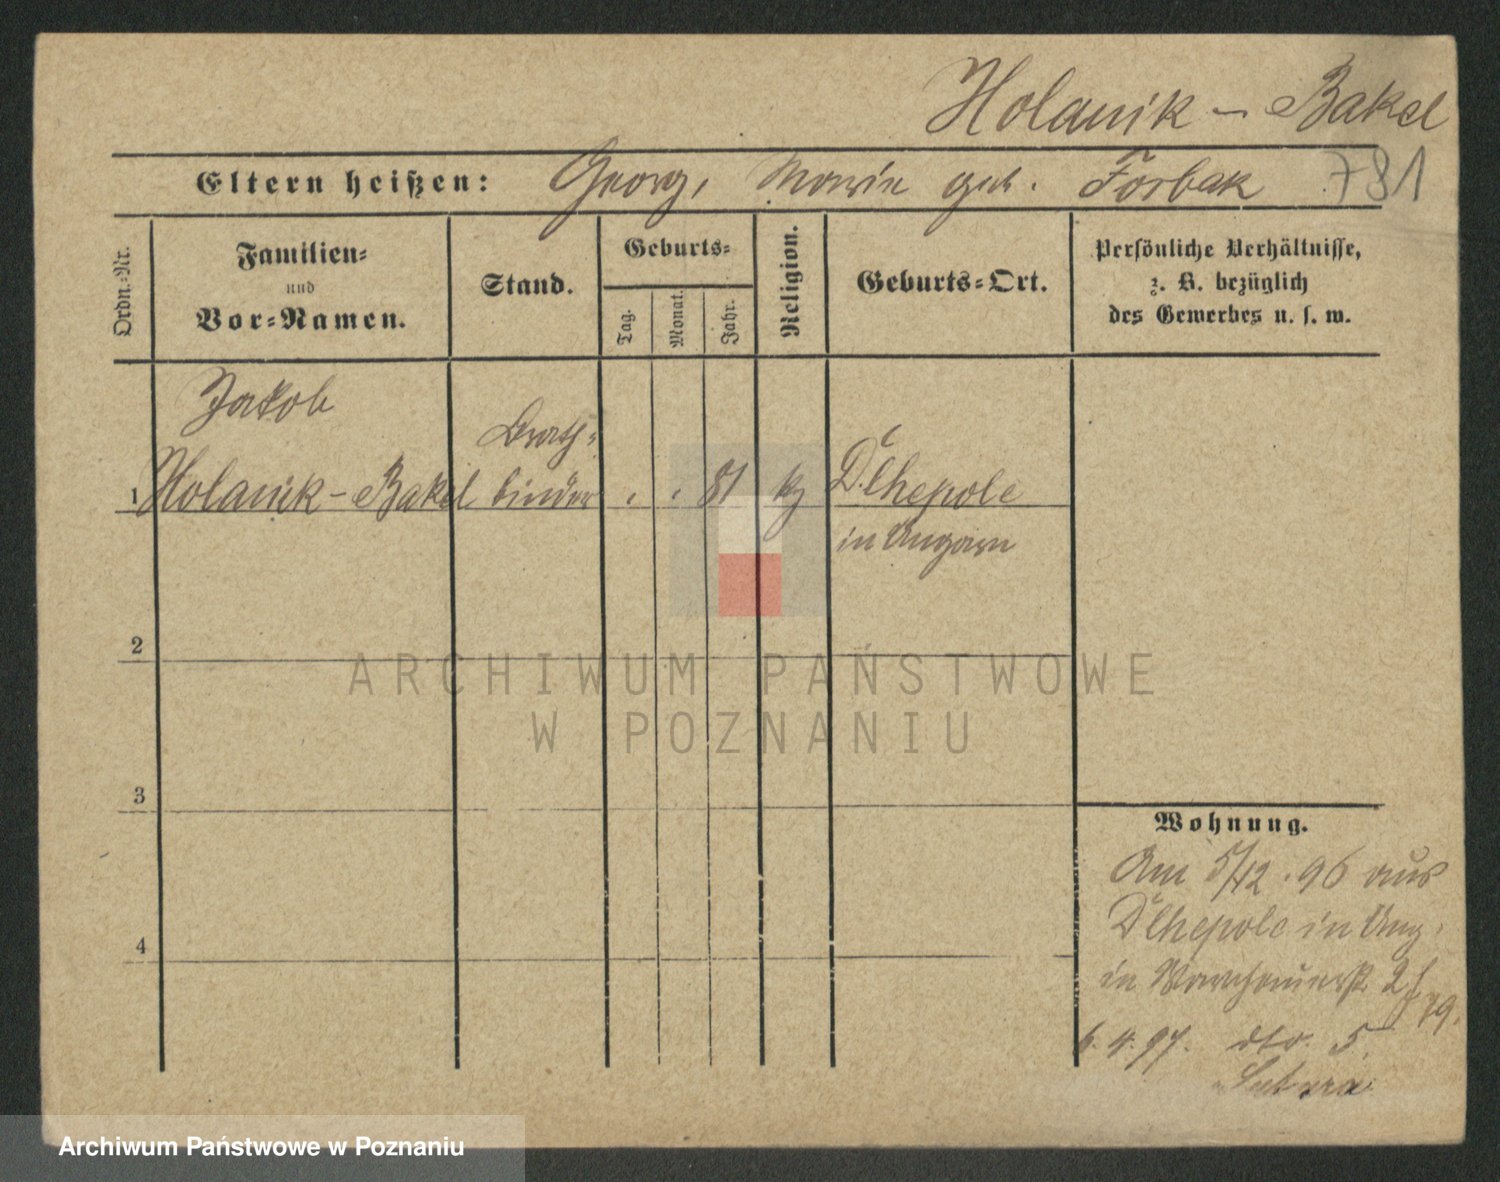 Holanik - Bakel
Eltern heißen: Georg, Marie geb. Forbak 781
Ordn.-Nr.
Familien-
und
Vor-Namen.
Stand.
Geburts-
Tag.
Monat.
Jahr.
Religion.
Geburts-Ort.
Persönliche Verhältnisse,
z. B. bezüglich
des Gewerbes u. s. w.
Jakob
Drath-
1 Holanik - Bakel binder . . 81 k. Dlhepole
in Ungarn
2
ARCHIWUM PAŃSTWOWE
W POZNANIU
3
Wohnung.
Am 5/12. 96 aus
Dlhepole in Ung.
4
in 2
79.
6. 4. 97. dto. 5
Archiwum Państwowe w Poznaniu